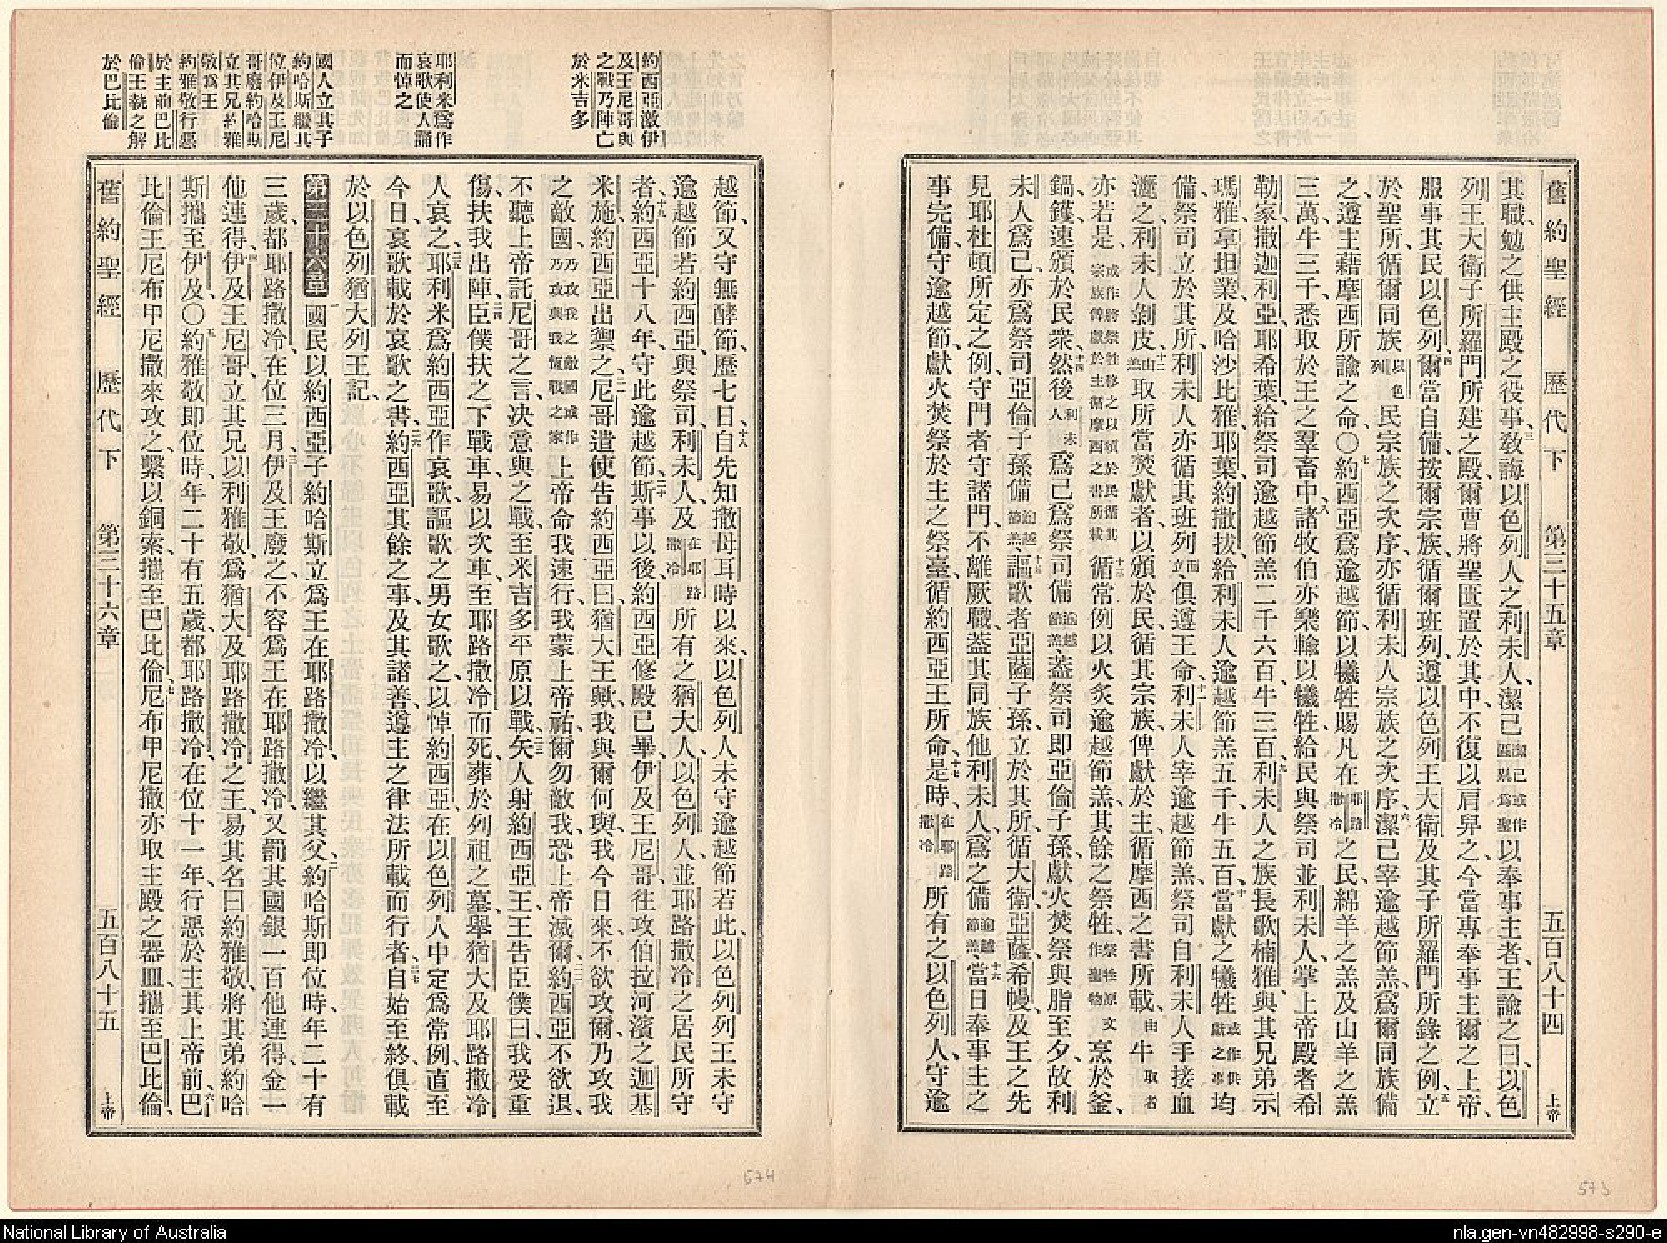 舊約聖經 歷代下 第三十五章 五百八十四 上帝
其職、勉之供主殿之役事、三教誨以色列人之利未人、潔己潔己或作區別爲聖以奉事主者、王諭之曰、以色
列王大衛子所羅門所建之殿、爾曹將聖匱置於其中、不復以肩舁之、今當專奉事主爾之上帝、
服事其民以色列、四爾當自備、按爾宗族、循爾班列、遵以色列王大衛及其子所羅門所錄之例、五立
於聖所、循爾同族以色列民宗族之次序、亦循利未人宗族之次序、六潔己宰逾越節羔、爲爾同族備
之、遵主藉摩西所諭之命、〇七約西亞爲逾越節、以犧牲賜凡在耶路撒冷之民、綿羊之羔及山羊之羔
三萬、牛三千、悉取於王之羣畜中、八諸牧伯亦樂輸以犧牲、給民與祭司並利未人、掌上帝殿者希
勒家、撒迦利亞、耶希葉、給祭司逾越節羔二千六百、牛三百、九利未人之族長歌楠雅、與其兄弟示
瑪雅、拿坦業、及哈沙比雅、耶葉、約撒拔、給利未人逾越節羔五千、牛五百、十當獻之犧牲或作供獻之事均
備、祭司立於其所、利未人亦循其班列立、俱遵王命、十一利未人宰逾越節羔、祭司自利未人手接血
灑之、利未人剝皮、十二由羔取所當焚獻者、以頒於民、循其宗族、俾獻於主、循摩西之書所載、由牛取者
亦若是、或作將祭牲移之以頒於民循其宗族俾獻於主循摩西之書所載十三循常例以火炙逾越節羔、其餘之祭牲、祭牲原文作聖物烹於釜、
鍋、鑊、速頒於民衆、十四然後利未人爲己爲祭司備逾越節羔、蓋祭司即亞倫子孫、獻火焚祭與脂至夕、故利
未人爲己、亦爲祭司亞倫子孫備逾越節羔、十五謳歌者亞薩子孫、立於其所、循大衛、亞薩、希幔、及王之先
見耶杜頓所定之例、守門者守諸門、不離厥職、蓋其同族他利未人、爲之備逾越節羔、十六當日奉事主之
事完備、守逾越節、獻火焚祭於主之祭臺、循約西亞王所命、十七是時、在耶路撒冷所有之以色列人、守逾
約西亞敵伊
及王尼哥與
之戰乃陣亡
於米吉多
耶利米爲作
哀歌使人誦
而悼之
國人立其子
約哈斯繼其
位伊及王尼
哥廢約哈斯
立其兄約雅
敬爲王
約雅敬行惡
於主前巴比
倫王執之解
於巴比倫
越節、又守無酵節、歷七日、十八自先知撒母耳時以來、以色列人未守逾越節若此、以色列列王未守
逾越節、若約西亞與祭司、利未人、及在耶路撒冷所有之猶大人、以色列人、並耶路撒冷之居民所守
者、十九約西亞十八年、守此逾越節、二十斯事以後、約西亞修殿已畢、伊及王尼哥往攻伯拉河濱之迦基
米施、約西亞出禦之、二一尼哥遣使告約西亞曰、猶大王歟、我與爾何與、我今日來、不欲攻爾、乃攻我
之敵國、乃攻我之敵國或作乃攻與我恆戰之家上帝命我速行、我蒙上帝祐、爾勿敵我、恐上帝滅爾、二二約西亞不欲退、
不聽上帝託尼哥之言、決意與之戰、至米吉多平原以戰、二三矢人射約西亞王、王告臣僕曰、我受重
傷、扶我出陣、二四臣僕扶之下戰車、易以次車、至耶路撒冷而死、葬於列祖之墓、舉猶大及耶路撒冷
人哀之、二五耶利米爲約西亞作哀歌、謳歌之男女歌之、以悼約西亞、在以色列人中定爲常例、直至
今日、哀歌載於哀歌之書、二六約西亞其餘之事、及其諸善、遵主之律法所載而行者、二七自始至終、俱載
於以色列猶大列王記、
第三十六章 國民以約西亞子約哈斯、立爲王在耶路撒冷、以繼其父、二約哈斯即位時、年二十有
三歲、都耶路撒冷、在位三月、三伊及王廢之、不容爲王在耶路撒冷、又罰其國銀一百他連得、金一
他連得、四伊及王尼哥、立其兄以利雅敬、爲猶大及耶路撒冷之王、易其名曰約雅敬、將其弟約哈
斯攜至伊及、〇五約雅敬即位時、年二十有五歲、都耶路撒冷、在位十一年、行惡於主其上帝前、六巴
比倫王尼布甲尼撒來攻之、繫以銅索、攜至巴比倫、七尼布甲尼撒亦取主殿之器皿、攜至巴比倫、
舊約聖經 歷代下 第三十六章 五百八十五 上帝
574
573
National Library of Australia
nla.gen-vn482998-s290-e